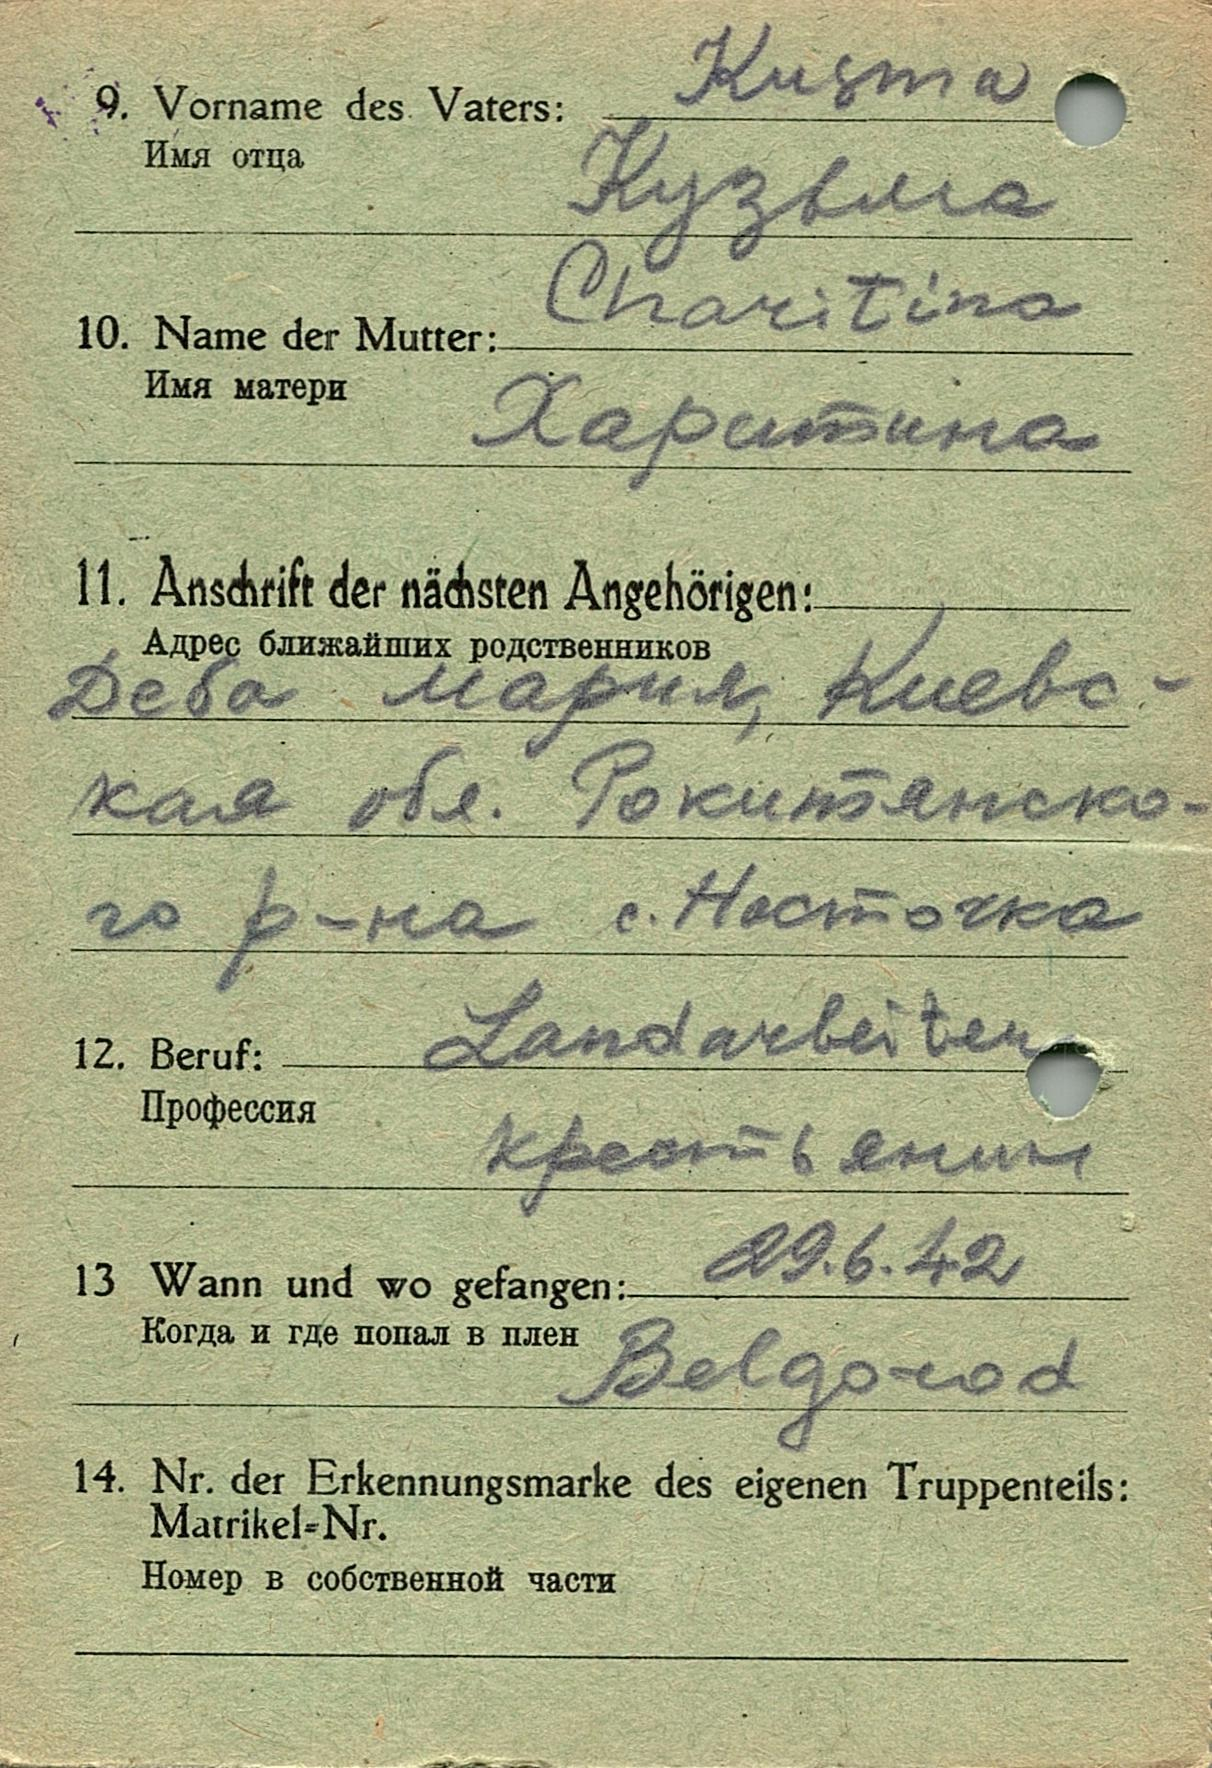 9. Vorname des Vaters: Kusma
Имя отца Кузьма
10. Name der Mutter: Charitina
Имя матери Харитина
11. Anschrift der nächsten Angehörigen:
Адрес ближайших родственников
Деба Мария, Киевс-
кая обл. Рокитянско-
го р-на с. Насточка
12. Beruf: Landarbeiter
Профессия крестьянин
13 Wann und wo gefangen: 29.6.42
Когда и где попал в плен Belgorod
14. Nr. der Erkennungsmarke des eigenen Truppenteils:
Matrikel=Nr.
Номер в собственной части